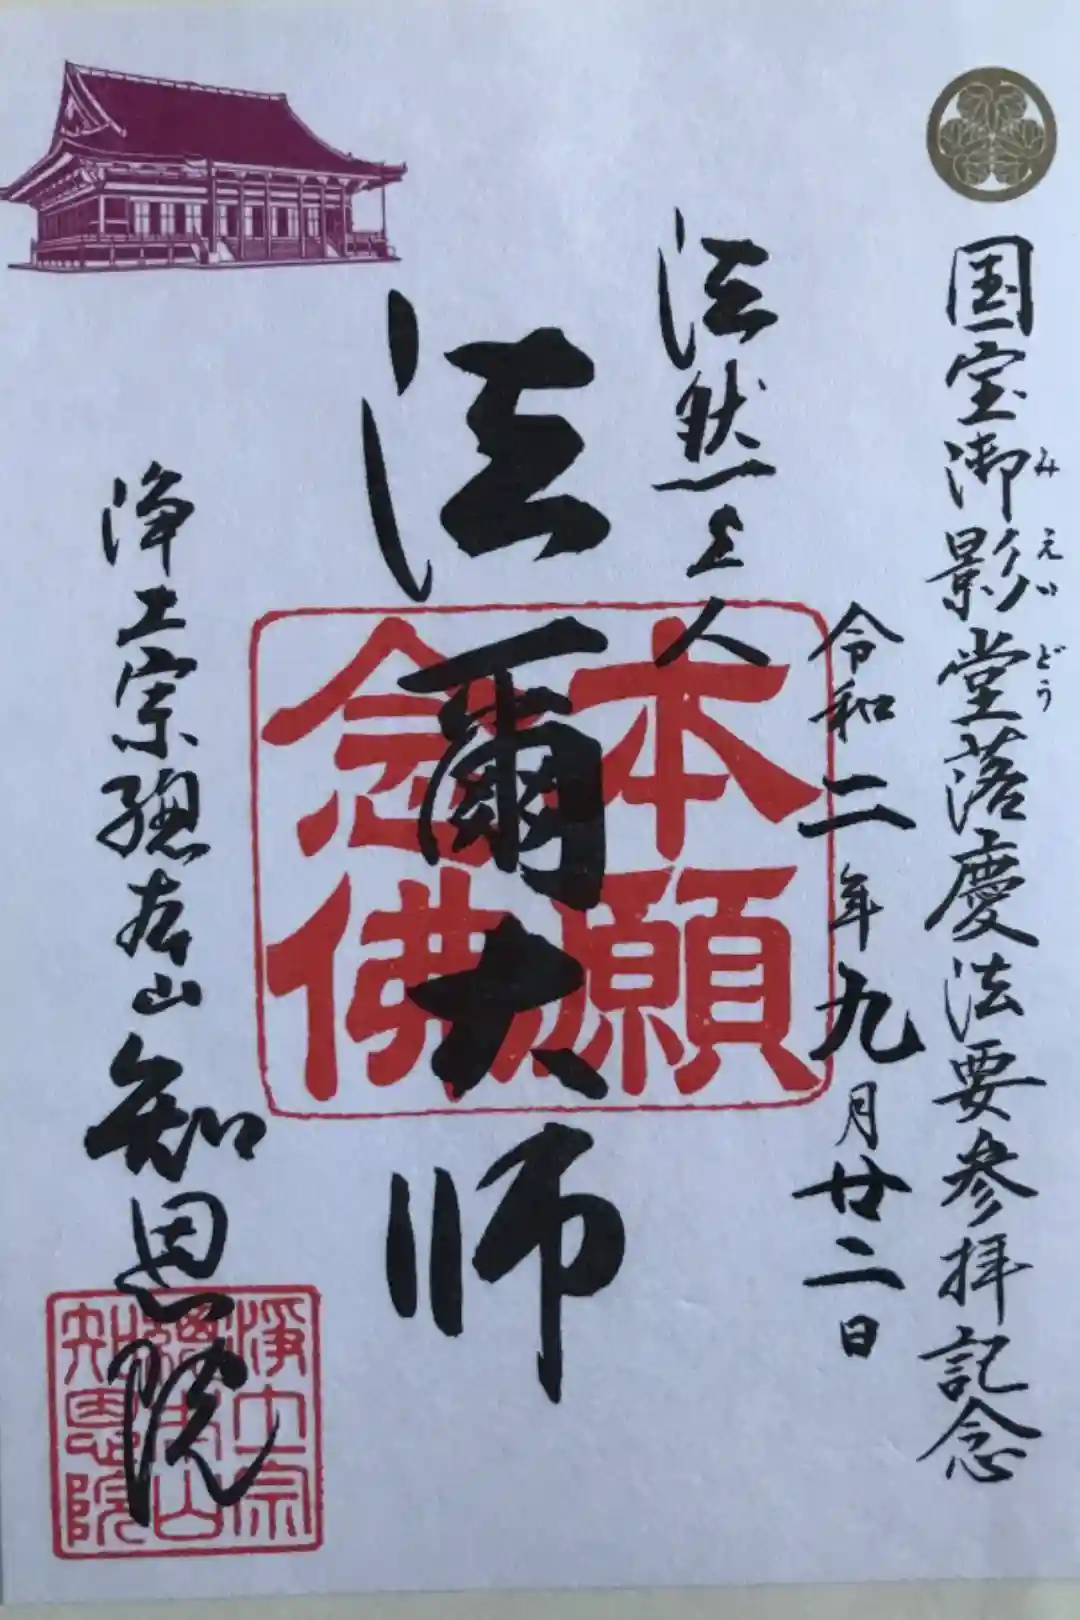 国宝御影堂落慶法要参拝記念
みえいどう
令和二年九月廿二日
法然上人
法爾大師
本願
念佛
浄土宗總本山知恩院
淨土宗
總本山
知恩院